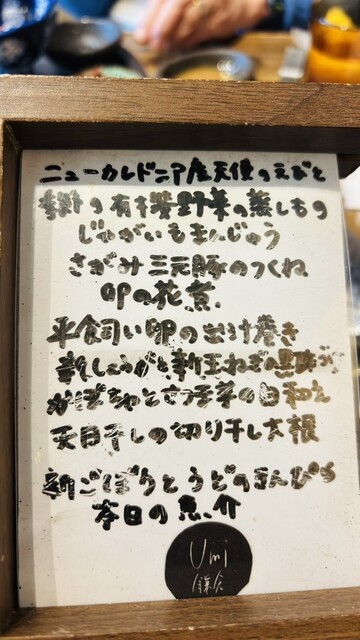 ニューカレドニア産天使のえびと
季節の有機野菜の蒸しもの
じゃがいもまんじゅう
さがみ三元豚のつくね
卯の花煮
平飼い卵の出汁巻き
新しょうがと新玉ねぎの黒酢
かぼちゃとさつま芋の白和え
天日干しの切り干し大根
新ごぼうとうどのきんぴら
本日の魚介
Umi
鎌倉